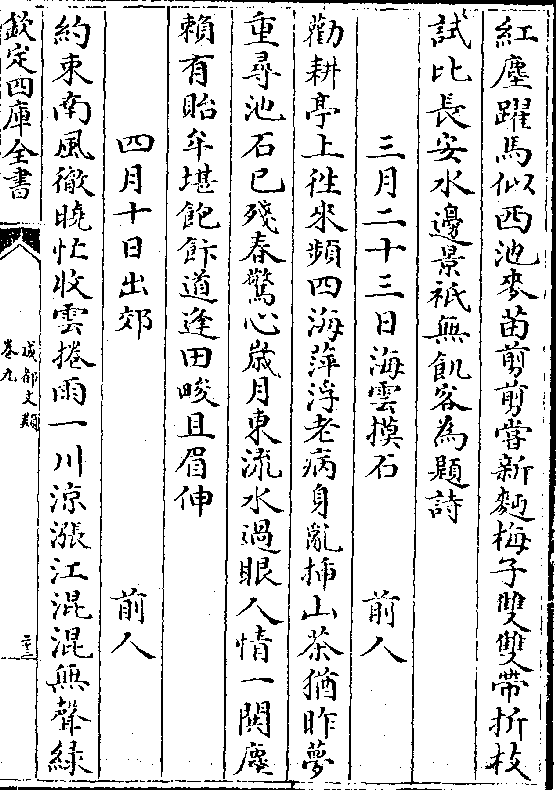 紅塵躍馬似西池麥苗剪剪嘗新麪梅子雙雙帶折枝
試比長安水邊景秪無飢客為題詩
三月二十三日海雲摸石 前人
勸耕亭上徃來頻四海萍浮老病身亂揷山茶猶昨夢
重尋池石已殘春驚心歲月東流水過眼人情一閧塵
賴有貽牟堪飽飰道逢田畯且眉伸
四月十日出郊 前人
約束南風徹曉忙收雲捲雨一川涼漲江混混無聲緑
欽定四庫全書
成都文類
卷九
二十三